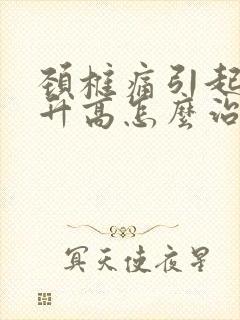 頚椎痛引起
升高怎麼治
冥天使夜星